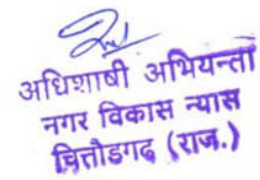 अधिशाषी अभियन्ता
नगर विकास न्यास
चित्तोडगढ (राज.)